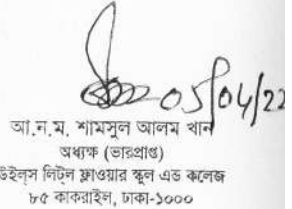 05/04/22
আ.ন.ম. শামসুল আলম খান
অধ্যক্ষ (ভারপ্রাপ্ত)
উইল্‌স লিট্‌ল ফ্লাওয়ার স্কুল এন্ড কলেজ
৮৫ কাকরাইল, ঢাকা-১০০০